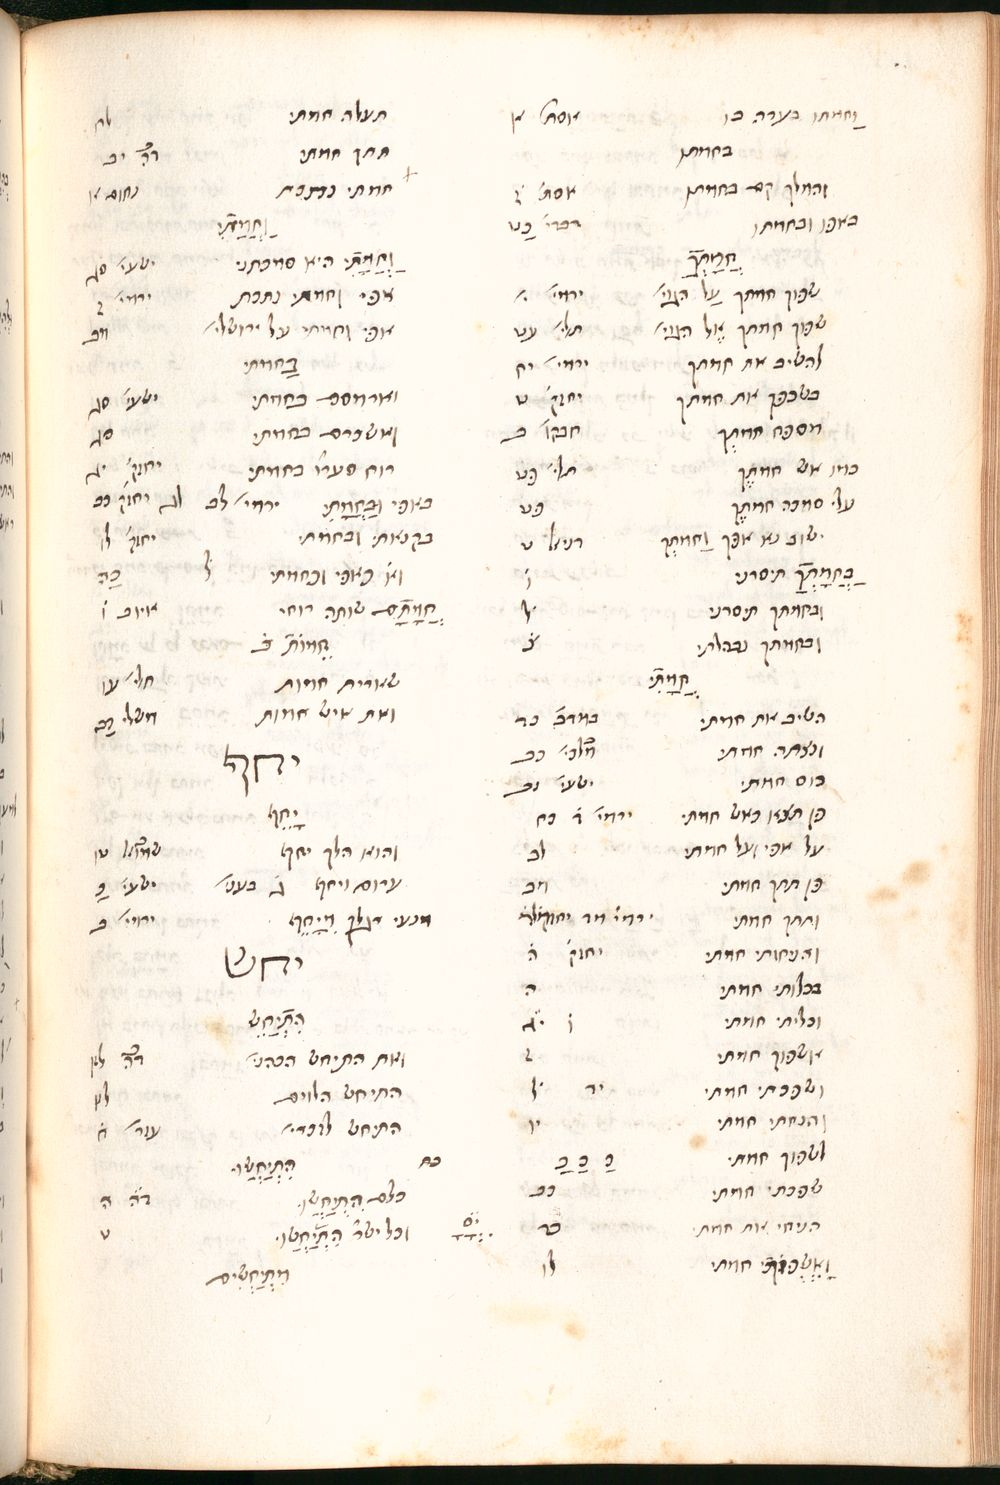 וַחמתו בערה בו אסת׳ א
בחמתו
והמלך קם בחמתו אסת׳ ז
באפו ובחמתו דברי׳ כט
חֲמָתְךָ
שפוך חמתך עַל הגוי׳ ירמי׳ י
שפוך חמתך אֶל הגוי׳ תלי׳ עט
להשיב את חמתך ירמי׳ יח
בשפכך את חמתך יחזק׳ ט
מספח חמתך חבקו׳ ב
כמו אש חמתֶך תלי׳ פט
עלי סמכה חמתֶך פח
ישוב נא אפך וַחמתך דניאל ט
בַּחֲמָתְךָ תיסרני ו
ובחמתך תיסרני לח
ובחמתך נבהלתי צ
חֲמָתִי
השיב את חמתי במדב׳ כה
ונצתה חמתי מלכי׳ כב
כוס חמתי ישעי׳ נא
פן תצא כאש חמתי ירמי׳ ד כא
על אפי ועל חמתי לב
כן תתך חמתי מב
ותתך חמתי ירמי׳ מד
והניחותי חמתי יחזק׳ ה
בכלותי חמתי ה
וכליתי חמתי ו יג
אשפוך חמתי ז
ושפכתי חמתי יד ל
והנחתי חמתי יו
לשפוך חמתי כ כ כ
שפכתי חמתי כב
הניחי את חמתי כד
וָאֶשְׁפּוֹךְ חמתי לו
תעלה חמתי לח
תתך חמתי דה׳ יב
חמתי נתכה נחום א
וַחֲמָתִי
וַחֲמָתִי היא סמכתני ישעי׳ סג
אפי וחמתי נתכת ירמי׳ ז
אפי וחמתי על ירושלי׳ מב
בַחמתי
וארמסם בחמתי ישעי׳ סג
ואשכרם בחמתי סג
רוח סערו׳ בחמתי יחזק׳ יג
באפי וּבַחֲמָתִי ירמי׳ לב לג יחזק׳ כב
בקנאתי ובחמתי יחזק׳ לו
באפי ובחמתי כה
חֲמָתָם שותה רוחי איוב ו
חֵמוֹת ב
שארית חמות תלי׳ עו
ואת איש חמות משלי כב
יחף
יָחֵף
והוא הלך יחף שמואל טו
ערום ויחף ג בעני׳ ישעי׳ כ
מנעי רגלך מִיָּחֵף ירמי׳ ב
יחש
הִתְיַחֵשׂ
ואת התיחש הכהני׳ דה׳ לא
התיחש הלוים לא
התיחש לזכרי׳ עזר׳ ח
הִתְיַחְשׂוּ כח
כלם הִתְיַחְשׂוּ דה׳ ה
וכל ישר׳ הִתְיַחְשׂוּ ט
מִתְיַחֲשִׂים